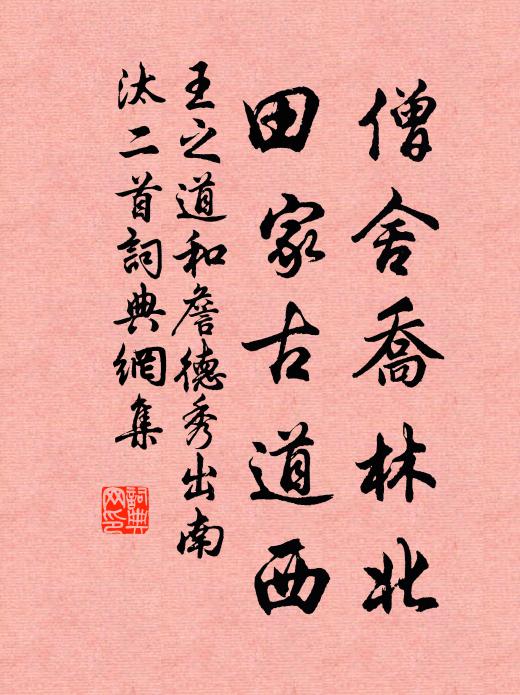 僧舍喬林北
田家古道西
王之道和詹德秀出南
汰二首詞典網集
詞典网印